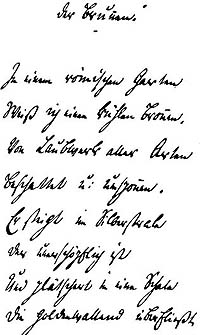 Der Brunnen.
In einem römischen Garten
Weiß ich einen kühlen Bronnen,
Von Laubwerk aller Arten
Beschattet u: umsponnen.
Er steigt im Silberstrale
Der unerschöpflich ist
Und plätschert in eine Schale
Die goldenwallend überfließt